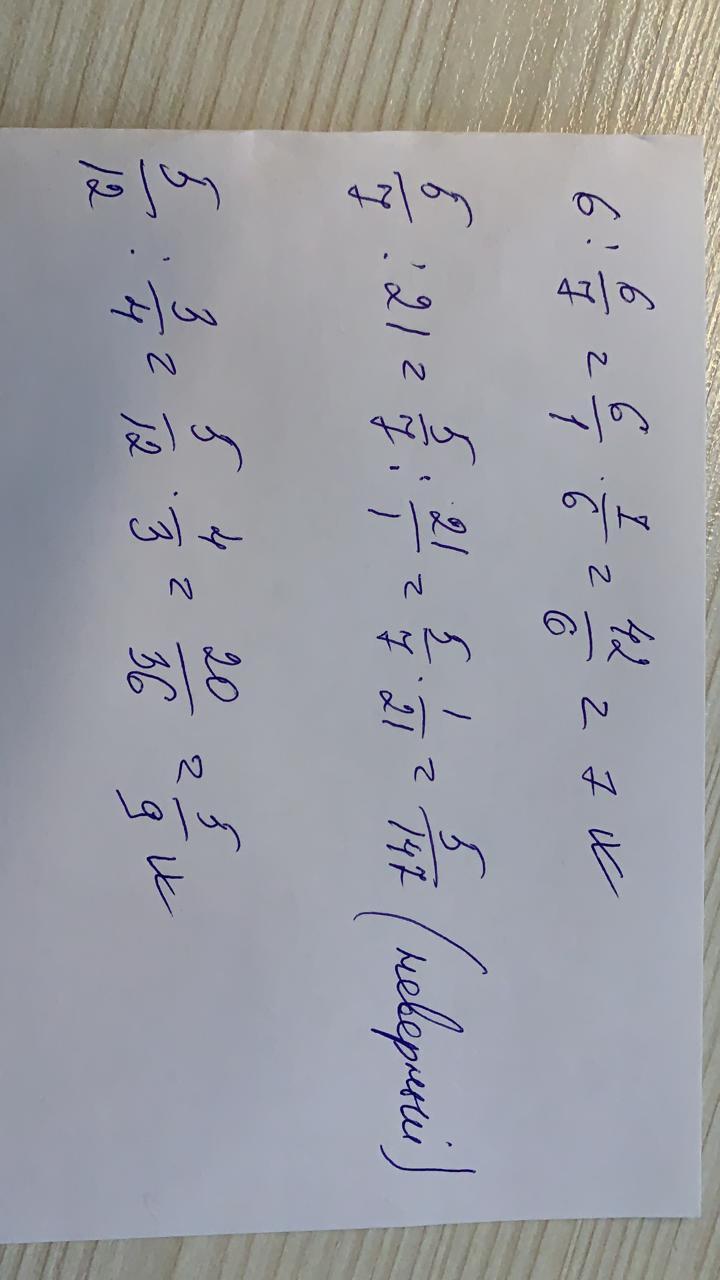 6 : 6/7 = 6/1 · 7/6 = 42/6 = 7 и
5/7 : 21 = 5/7 : 21/1 = 5/7 · 1/21 = 5/147 (неверный)
5/12 : 3/4 = 5/12 · 4/3 = 20/36 = 5/9 и